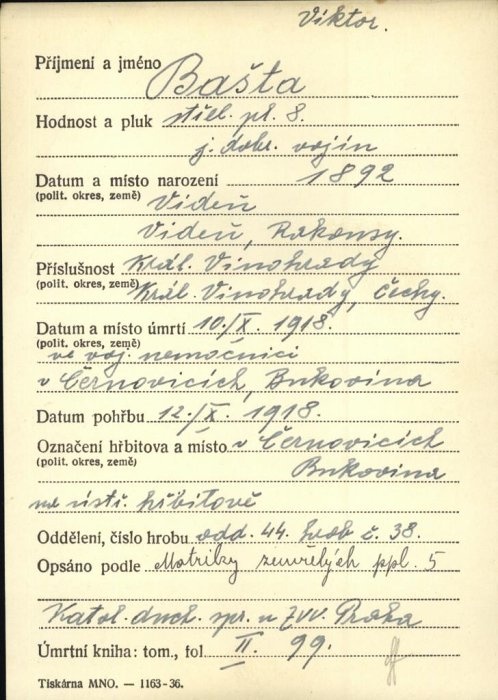 Viktor.
Příjmení a jméno Bašta
Hodnost a pluk střel. pl. 8.
j. dobr. vojín
Datum a místo narození 1892
(polit. okres, země) Videň
Videň, Rakousy.
Příslušnost Král. Vinohrady
(polit. okres, země) Král. Vinohrady, Čechy.
Datum a místo úmrtí 10./X. 1918.
(polit. okres, země)
ve voj. nemocnici
v Černovicích, Bukovina
Datum pohřbu 12./X. 1918.
Označení hřbitova a místo v Černovicích
(polit. okres, země) Bukovina
na ústř. hřbitově
Oddělení, číslo hrobu odd. 44. hrob č. 38.
Opsáno podle Matriky zemřelých ppl. 5
Katol. duch. spr. u ZVV. Praha
Úmrtní kniha: tom., fol II. 99.
Tiskárna MNO. — 1163-36.